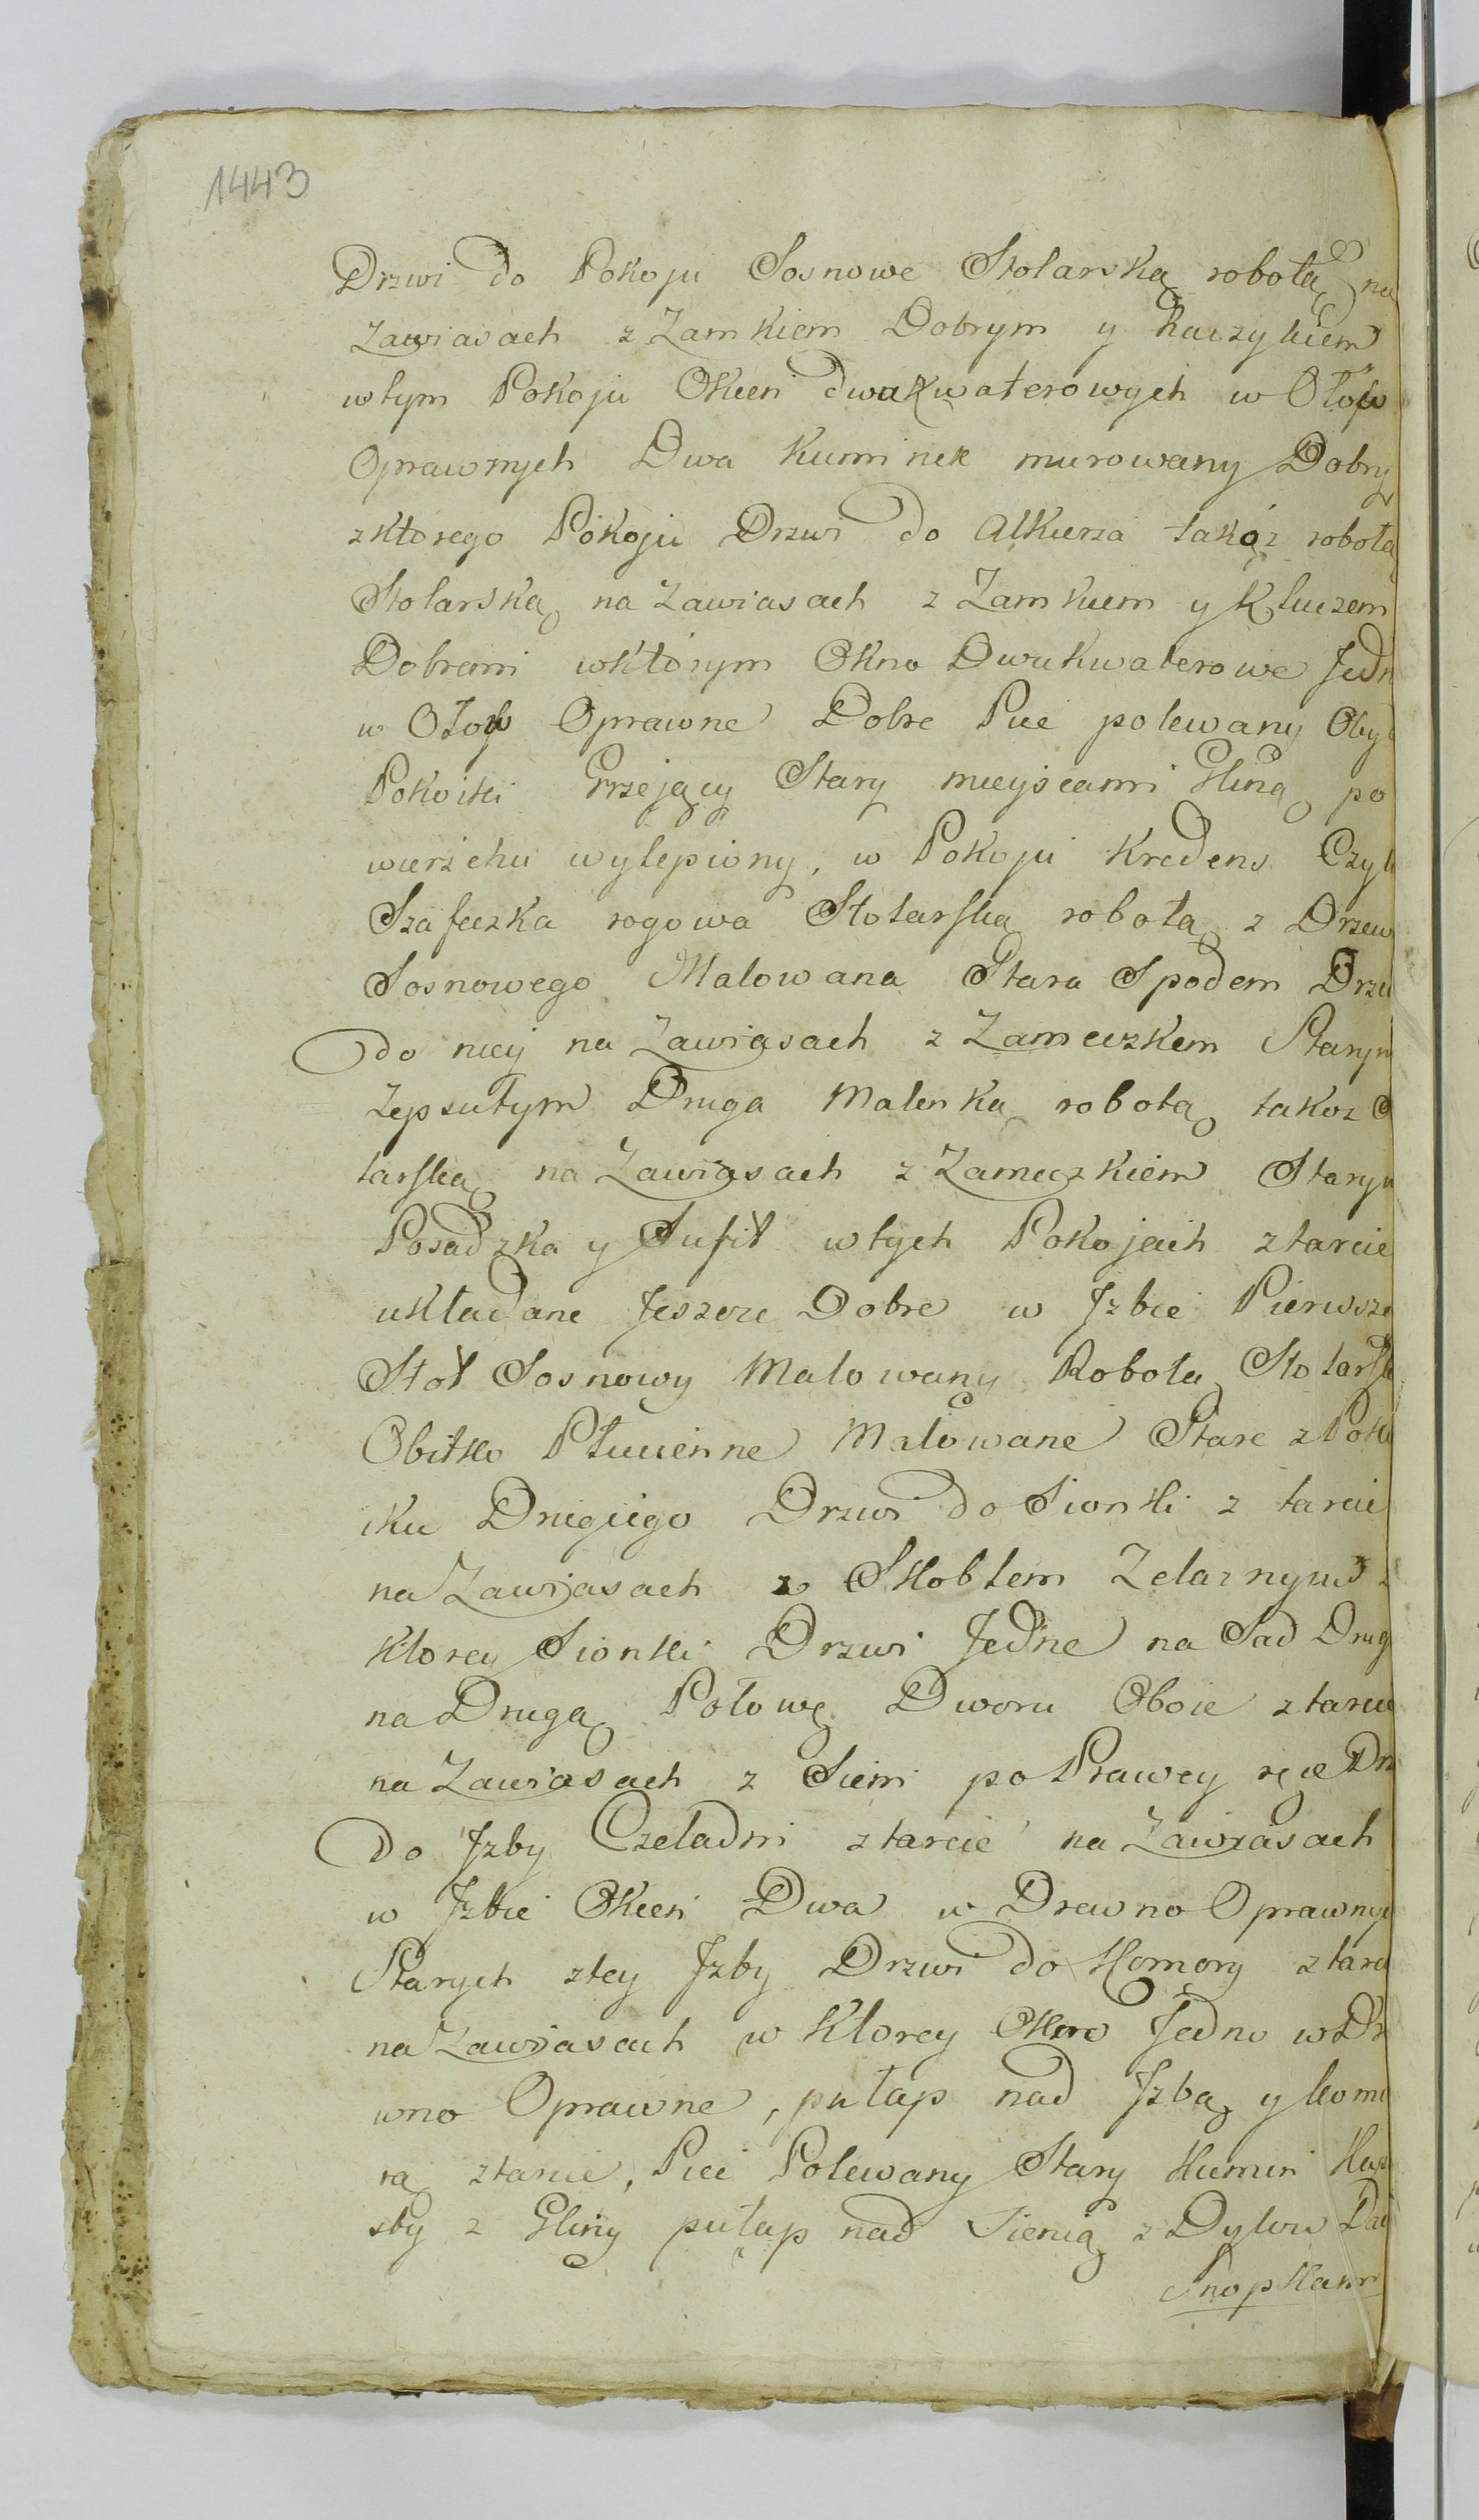 1443
Drzwi do Pokoju Sosnowe Stolarską robotą na
Zawiasach z Zamkiem Dobrym y haczykiem
wtym Pokoju Okien dwukwaterowych w Ołów
Oprawnych Dwa Kuminek murowany Dobry
zktórego Pokoju Drzwi do Alkierza takóz robotą
Stolarską na Zawiasach z Zamkiem y Kluczem
Dobremi wktórym Okno Dwukwaterowe Jedn
w Ołow Oprawne Dobre Piec polewany Oby
Pokoiki Grzejący Stary mieyscami Gliną po
wierzchu wylepiony, w Pokoju Kredens Czyl
Szafeczka rogowa Stolarską robotą z Drzew
Sosnowego Malowana Stara Spodem Drzw
do niey na Zawiasach z Zameczkem Starym
Zepsutym Druga Malenka robotą takoz S
larską na Zawiasach z Zameczkiem Starym
Posadzka y Sufit wtych Pokojach ztarcic
układane Jeszcze Dobre w Jzbie Pierwsze
Stół Sosnowy Malowany Robotą Stolarsk
Obitko Płucienne Malowane Stare z Poko
iku Drugiego Drzwi do Sionki z tarcic
na Zawiasach z Skoblem Zelaznym z
Ktorey Sionki Drzwi Jedne na Sad Drug
na Drugą Połowę Dworu Oboie ztarcic
na Zawiasach z Sieni po Prawey ręce Drz
do Jzby Czeladni ztarcic na Zawiasach
w Jzbie Okien Dwa w Drewno Oprawnych
Starych ztey Jzby Drzwi do Komory ztarci
na Zawiasach w Ktorey Okno Jedno w Dr
wno Oprawne, pułap nad Jzbą y komo
rą ztarcic, Piec Polewany Stary Kumin Kap
sty z Gliny pułap nad Sienią z Dylow Dac
Snopkami